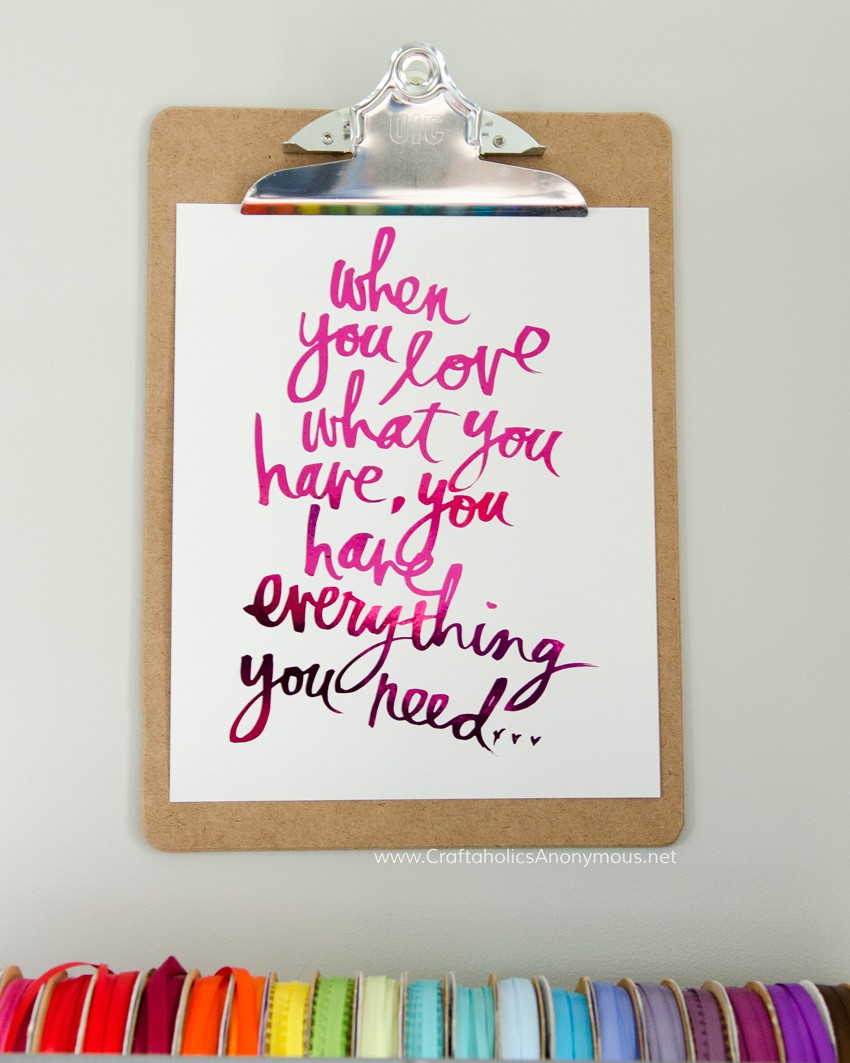 UIC
when
you love
what you
have, you
have
everything
you need...
www.CraftaholicsAnonymous.net